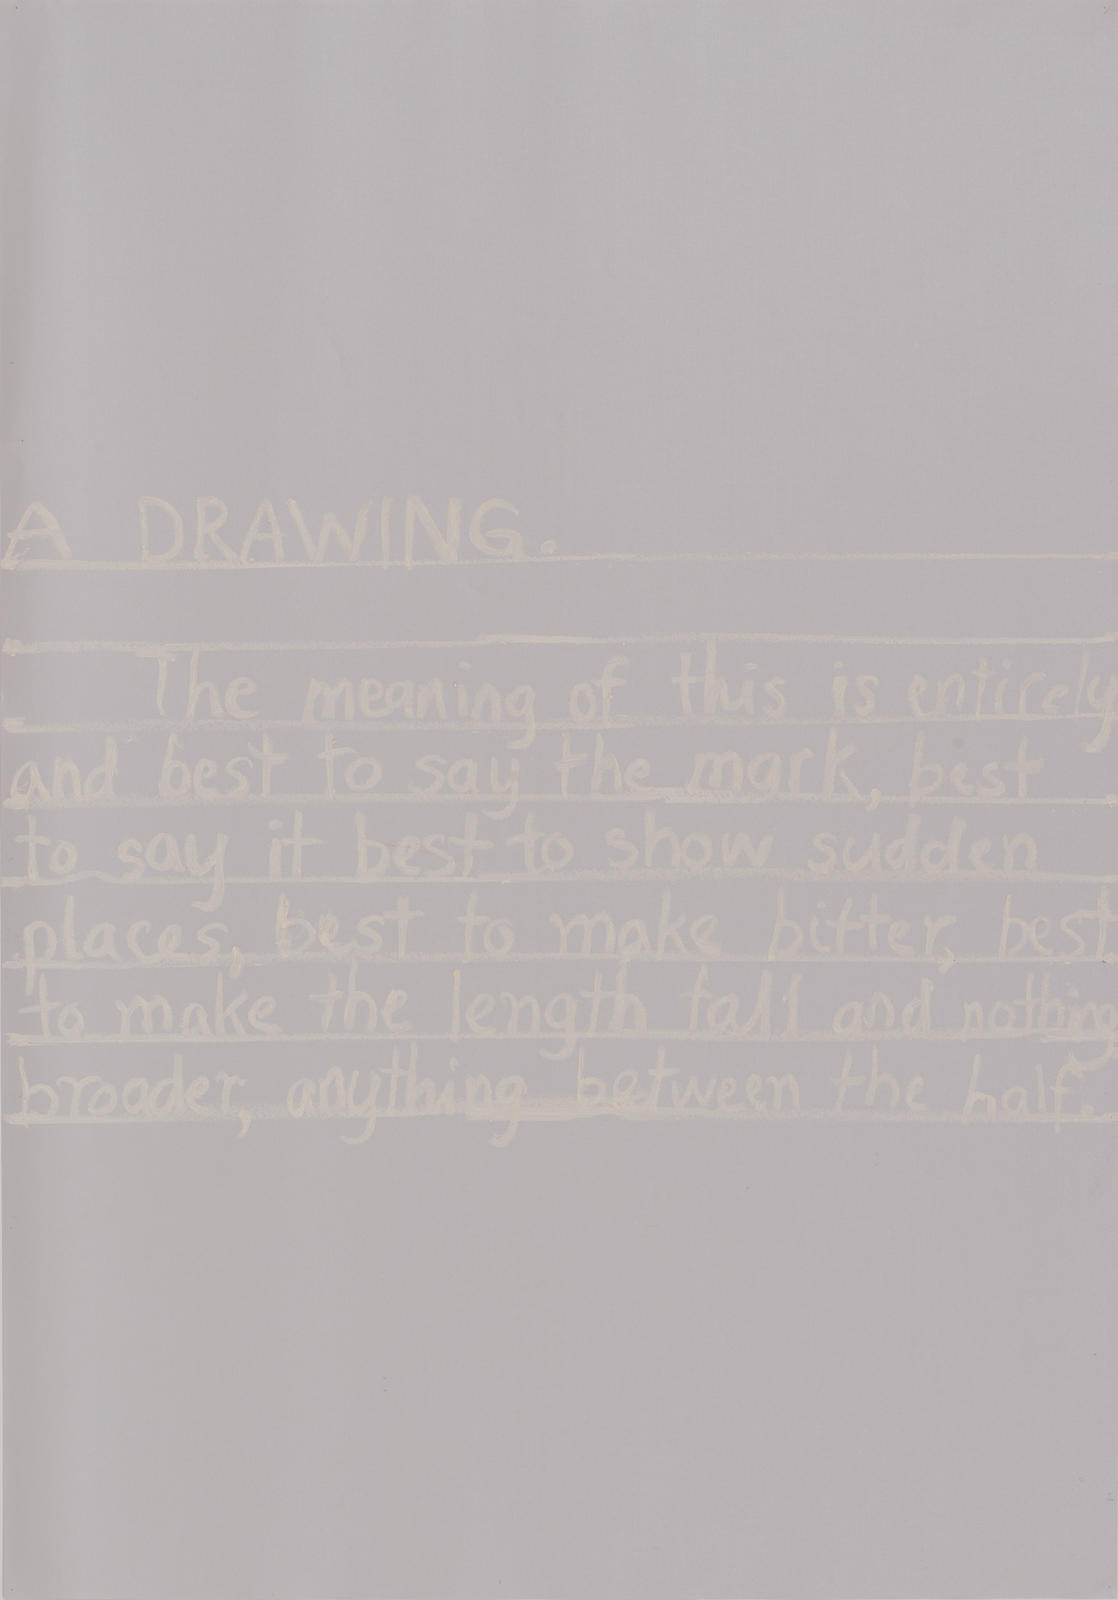 A DRAWING.
The meaning of this is entirely
and best to say the mark, best
to say it best to show sudden
places, best to make bitter, best
to make the length tall and nothing
broader, anything between the half.